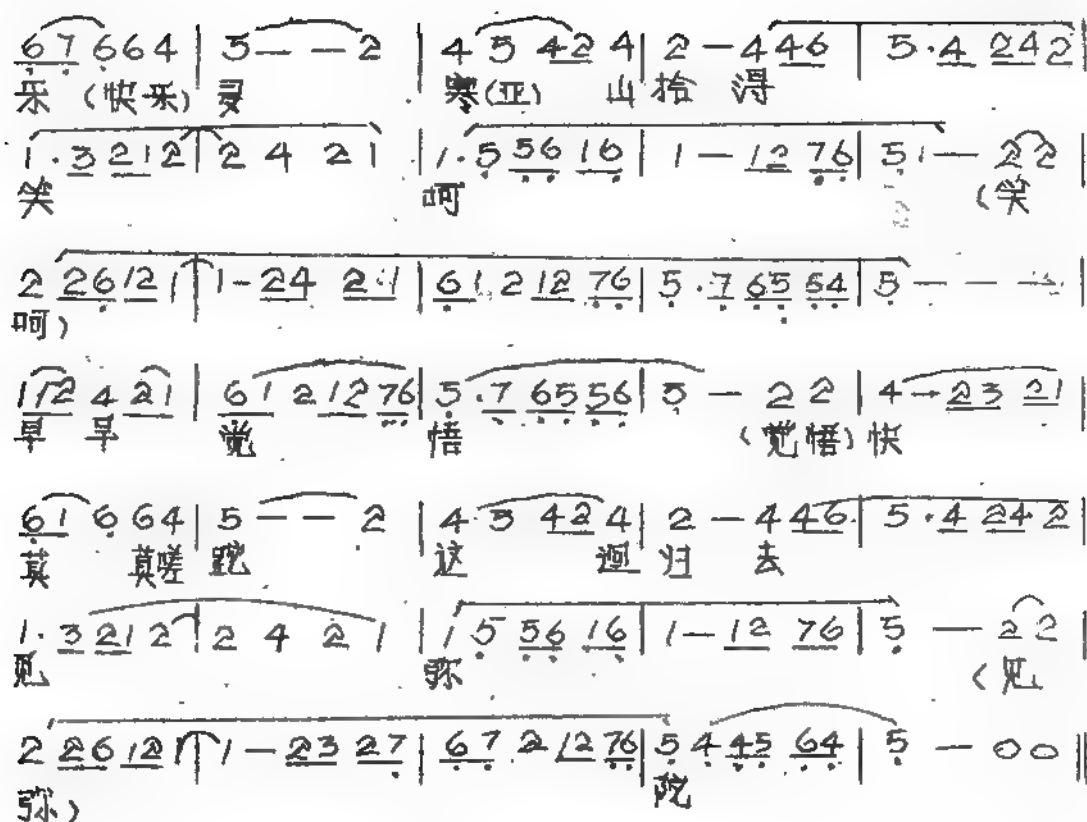 67 6 64 | 5 — — 2 | 4 5 42 4 | 2 — 4 46 | 5·4 24 2 |
乐 (快乐) 灵 寒(亚) 山 拾 得
1·3 21 2 | 2 4 2 1 | 1·5 56 16 | 1 — 12 76 | 5 1 — 2 2 |
笑 呵 (笑
2 26 12 1 | 1 - 24 21 | 61 2 12 76 | 5·7 65 54 | 5 — — — |
呵)
112 4 21 | 61 2 12 76 | 5·7 65 56 | 5 — 2 2 | 4 — 23 21 |
早 早 觉 悟 (觉悟) 快
61 6 64 | 5 — — 2 | 4·3 42 4 | 2 — 4 46 | 5·4 24 2 |
莫 莫嗟 跎 这 迴 归 去
1·3 21 2 | 2 4 2 1 | 1 5 56 16 | 1 — 12 76 | 5 — 2 2 |
见 弥 (见
2 26 12 1 | 1 — 23 27 | 67 2 12 76 | 5 4 45 64 | 5 — 0 0 ‖
弥) 陀